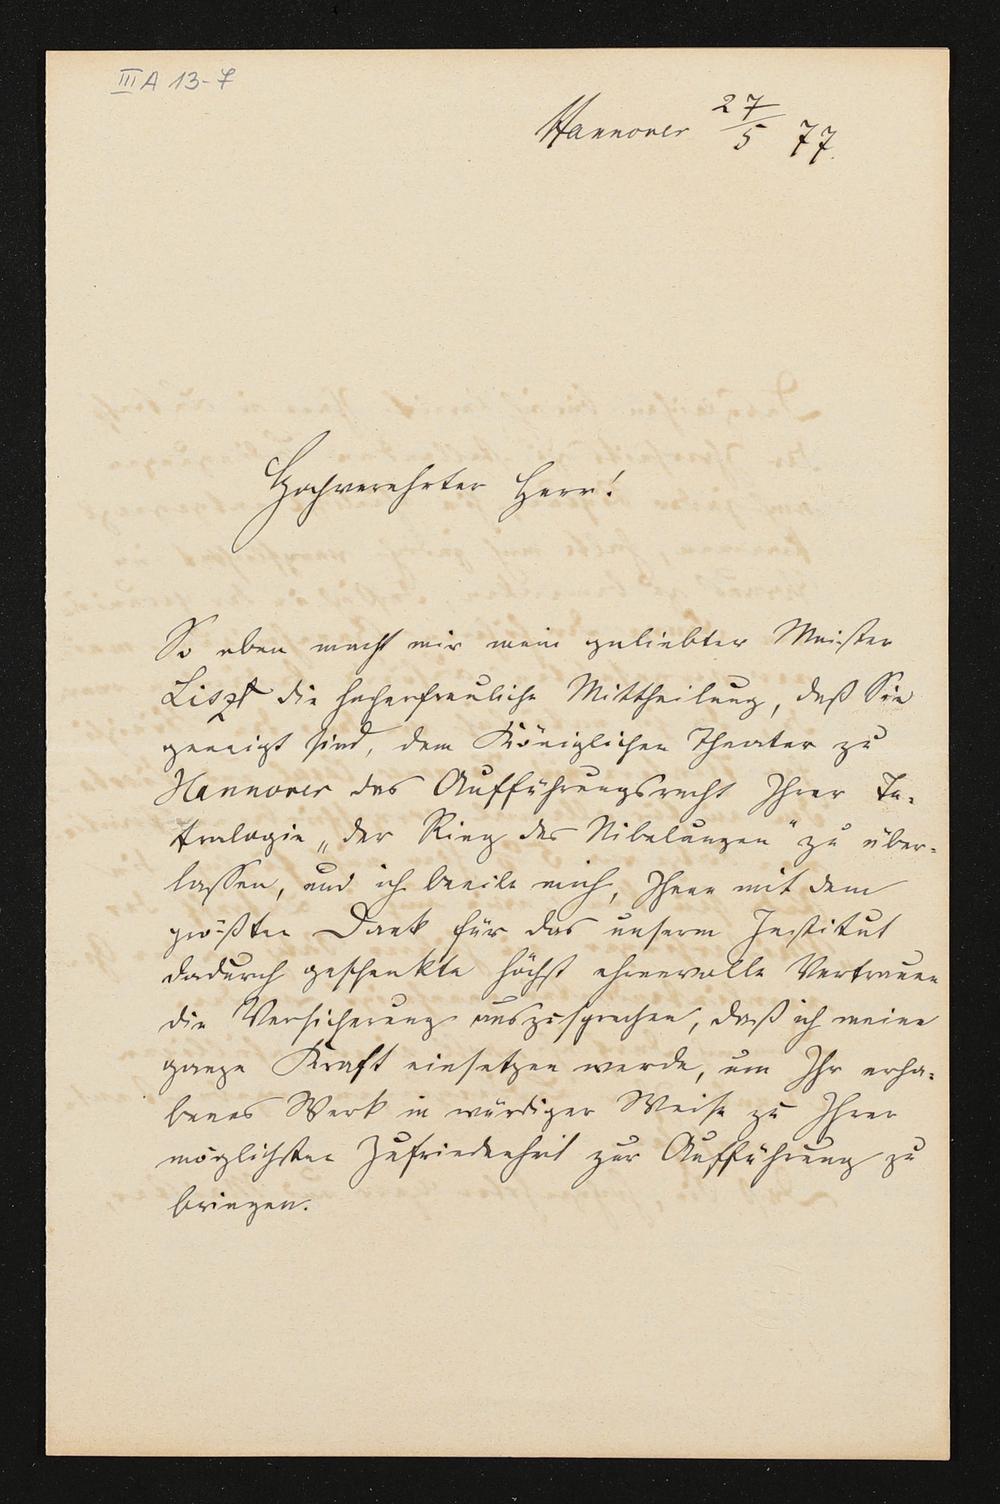 III A 13-7
Hannover 27/5 77.
Hochverehrter Herr!
So eben macht mir mein geliebter Meister
Liszt die hocherfreuliche Mittheilung, daß Sie
geneigt sind, dem Königlichen Theater zu
Hannover das Aufführungsrecht Ihrer Te-
tralogie „der Ring des Nibelungen" zu über-
lassen, und ich beeile mich, Ihnen mit dem
größten Dank für das unserm Institut
dadurch geschenkte höchst ehrenvolle Vertrauen
die Versicherung auszusprechen, daß ich meine
ganze Kraft einsetzen werde, um Ihr erha-
benes Werk in würdiger Weise zu Ihrer
möglichsten Zufriedenheit zur Aufführung zu
bringen.